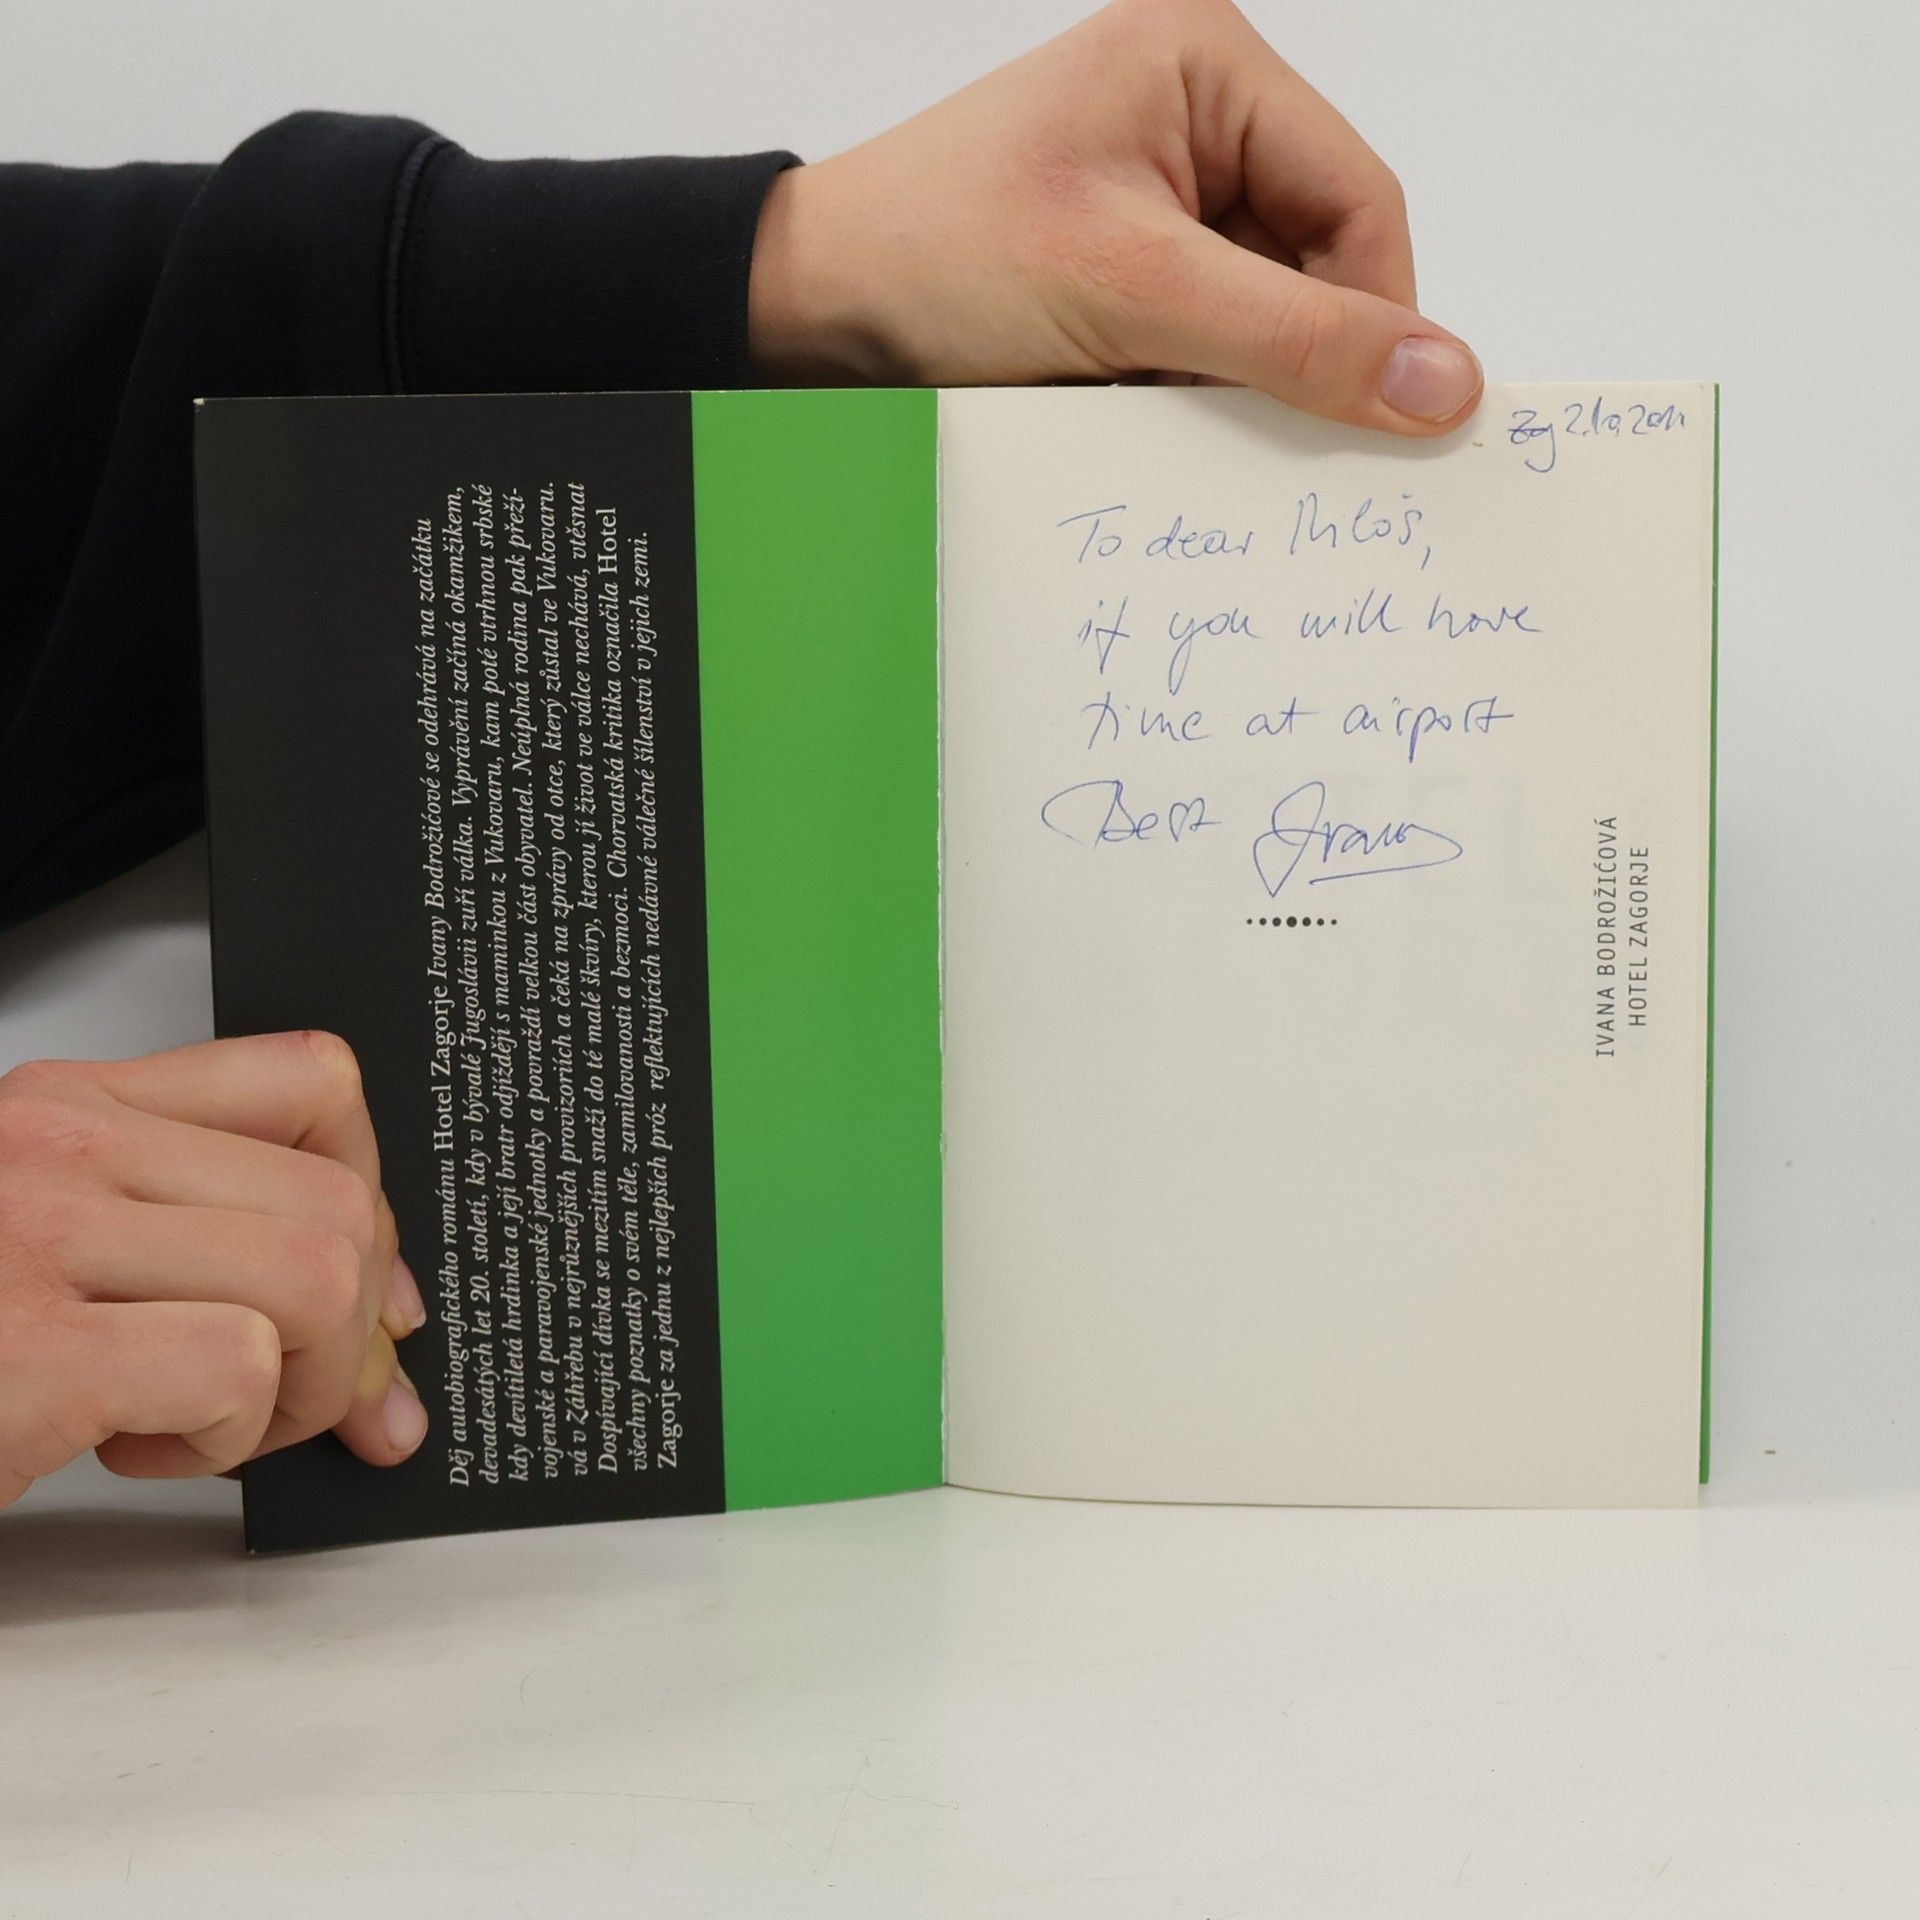 Děj autobiografického románu Hotel Zagorje Ivany Bodrožićové se odehrává na začátku
devadesátých let 20. století, kdy v bývalé Jugoslávii zuří válka. Vyprávění začíná okamžikem,
kdy devítiletá hrdinka a její bratr odjíždějí s maminkou z Vukovaru, kam poté vtrhnou srbské
vojenské a paravojenské jednotky a povraždí velkou část obyvatel. Neúplná rodina pak přeží-
vá v Záhřebu v nejrůznějších provizoriích a čeká na zprávy od otce, který zůstal ve Vukovaru.
Dospívající dívka se mezitím snaží do té malé škvíry, kterou jí život ve válce nechává, vtěsnat
všechny poznatky o svém těle, zamilovanosti a bezmoci. Chorvatská kritika označila Hotel
Zagorje za jednu z nejlepších próz reflektujících nedávné válečné šílenství v jejich zemi.
Zg 2.10.2011
To dear Miloš,
if you will have
time at airport
Best Ivana
IVANA BODROŽIĆOVÁ
HOTEL ZAGORJE